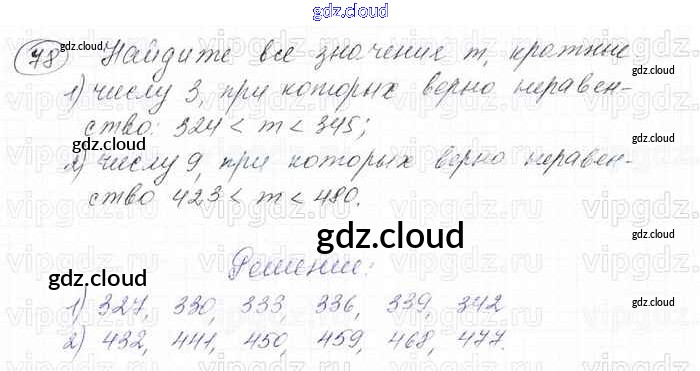 gdz.cloud
78 Найдите все значения m, кратные
1) числу 3, при которых верно неравен-
ство: 324 < m < 345;
2) числу 9, при которых верно неравен-
ство 423 < m < 480.
gdz.cloud
Решение:
1) 327, 330, 333, 336, 339, 342
2) 432, 441, 450, 459, 468, 477.